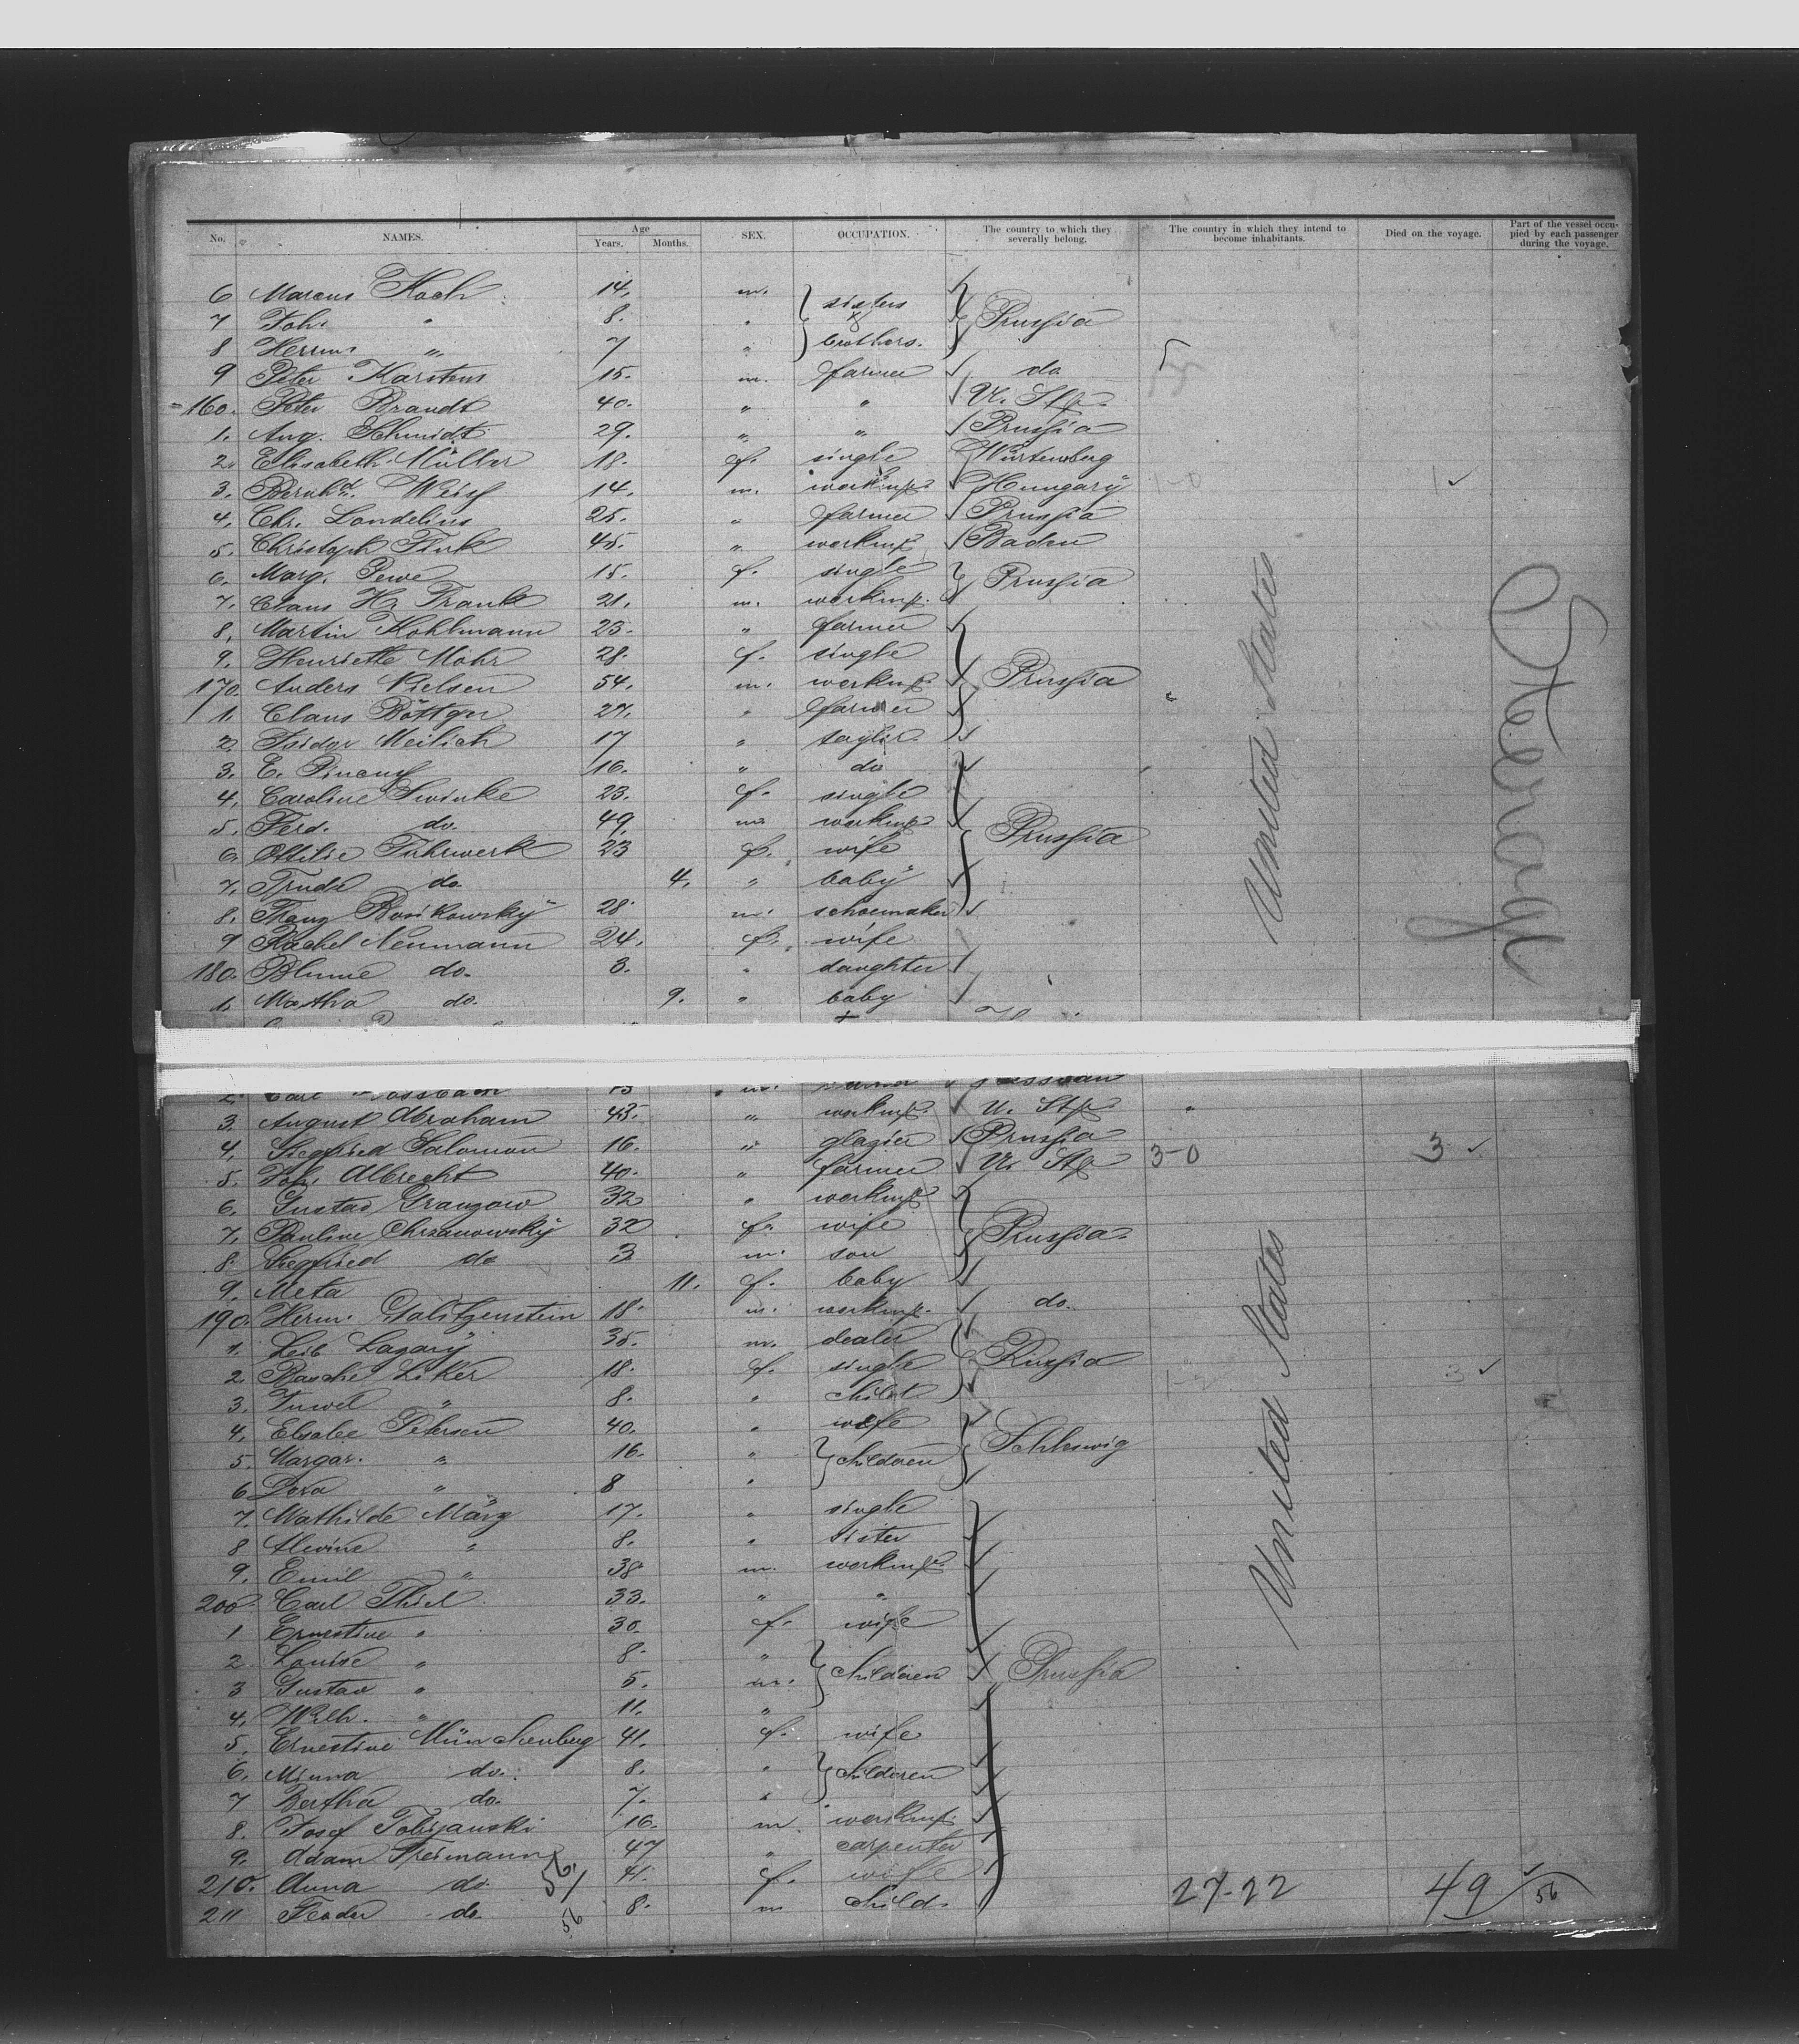 No. NAMES. Age Years. Months. SEX. OCCUPATION. The country to which they severally belong. The country in which they intend to become inhabitants. Died on the voyage. Part of the vessel occupied by each passenger during the voyage.
6 Marcus Koch 14. m. sisters
7 Joh. " 8. " & Prussia
8 Herm. " 7 " brothers.
9 Peter Karstens 15. m. farmer do
160. Peter Brandt 40. " " U. Sts.
1. Aug. Schmidt 29. " " Prussia
2. Elisabeth Müller 18. f. single Würtemberg
3. Bernhd. Weiss 14. m. workmp. Hungary 1
4. Chr. Landelius 25. " farmer Prussia
5. Christoph Fink 45. " workmp. Baden
6. Marg. Pewe 15. f. single Prussia
7. Claus H. Frank 21. m. workmp.
8. Martin Kohlmann 23. " farmer
9. Henriette Mohr 28. f. single
170. Anders Nielsen 54. m. workmp. Prussia
1. Claus Böttger 27. " farmer
2. Isidor Meilich 17 " taylor
3. E. Pincus 16. " do
4. Caroline Swinke 23. f. single
5. Ferd. do. 49. m. workmp.
6. Ottilie Fuhrwerk 23 f. wife Prussia
7. Truda do. 4. " baby
8. Franz Rosikowsky 28. m. schoemaker
9 Rachel Neumann 24. f. wife
180. Blume do. 3. " daughter
1. Martha do. 9. " baby
United States
Steerage
2. Carl m.
3. August Abraham 43. " workmp. U. Sts.
4. Siegfried Salomon 16. " glazier Prussia 3
5. Joh. Albrecht 40. " farmer U. Sts 3-0
6. Gustav Granzow 32 " workmp.
7. Pauline Chrzanowsky 32 f. wife Prussia
8. Siegfried do 3 m. son
9. Meta 11. f. baby
190. Herm. Galitzenstein 18. m. workmp. do.
1. Leib Lazary 35. m. dealer
2. Basche Liker 18. f. single Russia 3
3. " 8. " child
4. Elsabe Petersen 40. " wife
5. Margar. " 16. " children Schleswig
6 Dora " 8 "
7. Mathilde März 17. " single
8 Alwine " 8. " sister
9. Emil " 38 m. workmp.
200. Carl Thiel 33. " "
1 Ernestine " 30. f. wife
2. Louise " 8. "
3 Gustav " 5. m. children Prussia
4. Wilh. " 11. "
5. Ernestine Münchenberg 41. f. wife
6. Minna do. 8. " children
7 Bertha do. 7. "
8. Josef Tobrzanski 16. m. workmp.
9. Adam Freimann 47 " carpenter
210. Anna do. 41. f. wife 27-22 49 56
211 Feodor do. 56 8. m child.
United States